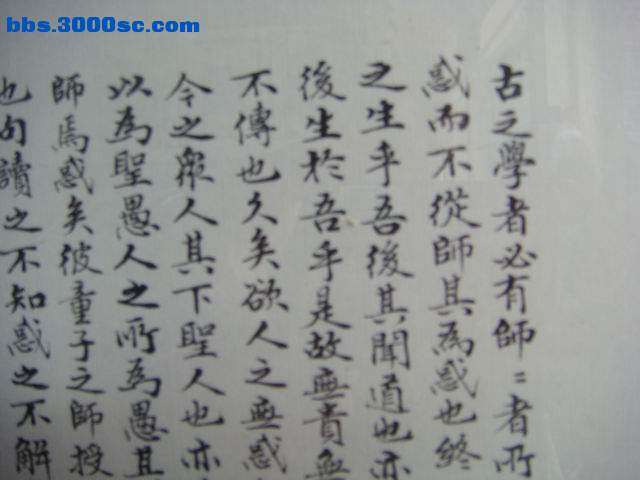 bbs.3000sc.com
古之學者必有師〻者所
惑而不從師其為惑也終
之生乎吾後其聞道也亦
後生於吾乎是故無貴無
不傳也久矣欲人之無惑
今之眾人其下聖人也亦
以為聖愚人之所為愚其
師焉惑矣彼童子之師授
也句讀之不知惑之不解